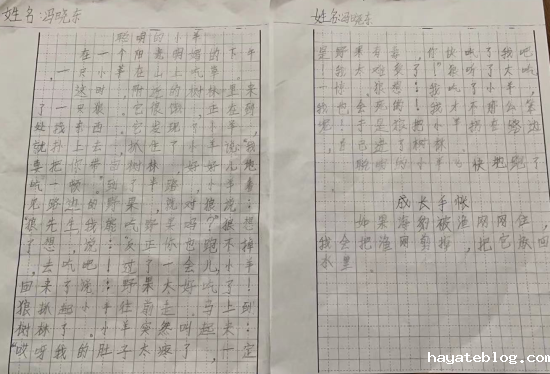 姓名:冯晓东
聪明的小羊
在一个阳光明媚的下午
,一只小羊在山上吃草。
这时,附近的树林里来
了一只狼。它很饿,正在到
处找东西。它发现了小羊,
就扑上去,抓住了小羊说"我
要把你带回树林,好好儿地
吃一顿。"到了半路,小羊看
见路边的野果,就对狼说:
"狼先生我能吃野果吗?"狼想
了想,说:"反正你也跑不掉
,去吃吧!过了一会儿小羊
回来了说:野果太好吃了!
狼抓起小羊往前走。马上到
树林了。小羊突然叫起来:
"哎呀我的肚子太疼了,一定
姓名:冯晓东
是野果有毒,你快吃了我吧
!我太难受了!"狼听了大吃
一惊,狼想:我吃了小羊,
我也会死的!我才不那么笨
呢!于是狼把小羊扔在路边
,自己进了树林
聪明的小羊飞快地跑了
成长手帐
如果海豹被渔网网住,
我会把渔网剪掉,把它放回
水里。
hayateblog.com